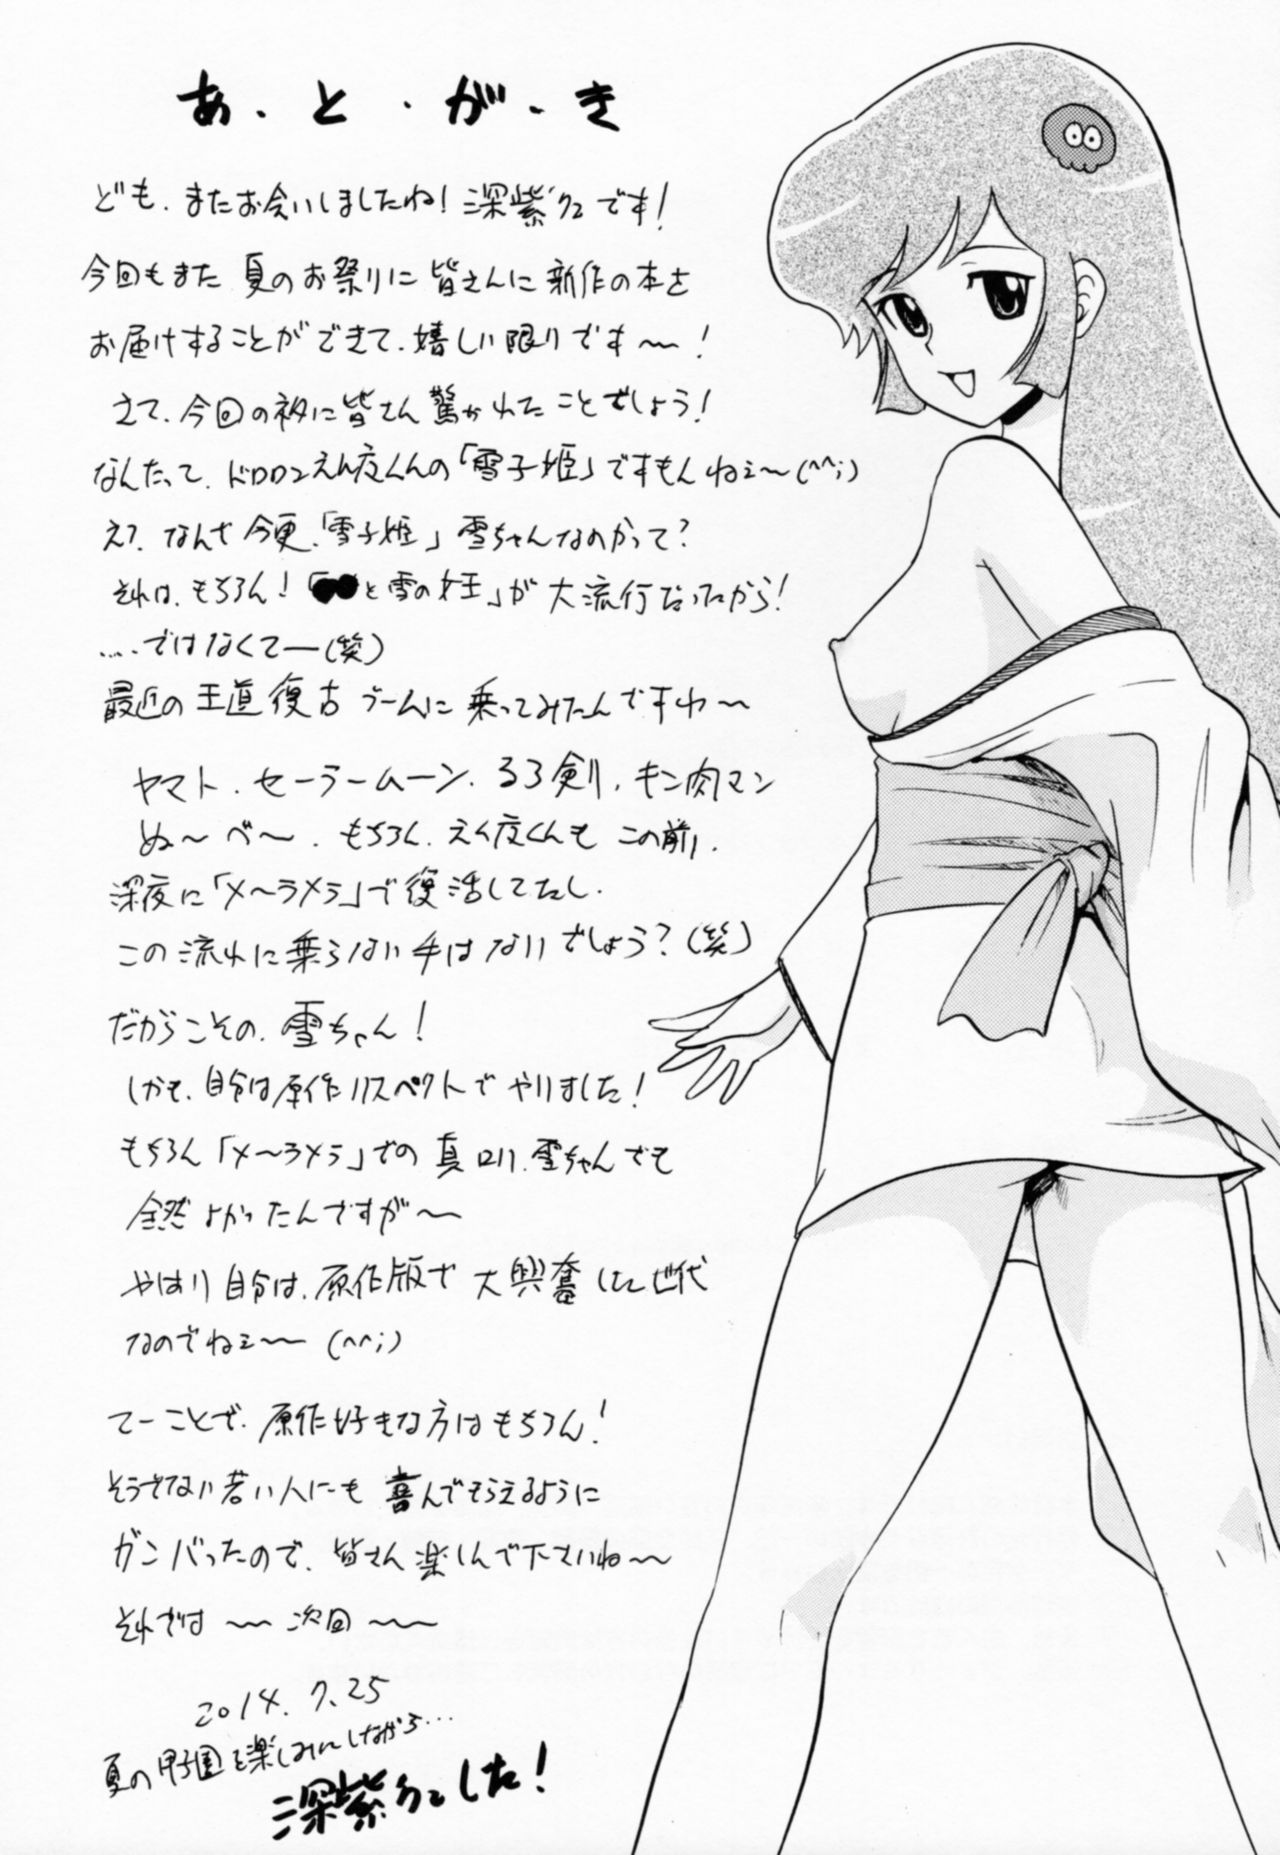 あ・と・が・き
ども、またお会いしましたね！深紫クニです！
今回もまた夏のお祭りに皆さんに新作の本を
お届けすることができて、嬉しい限りです〜！
さて、今回のネタに皆さん驚かれたことでしょう！
なんたって、ドロロンえん魔くんの「雪子姫」ですもんねェ〜(^^;)
え？なんで今更、「雪子姫」雪ちゃんなのかって？
それは、もちろん！「●●と雪の女王」が大流行だったから！
....ではなくてー(笑)
最近の王道復古ブームに乗ってみたんですわ〜
ヤマト、セーラームーン、るろ剣、キン肉マン
ぬ〜べ〜、もちろん、えん魔くんもこの前、
深夜に「メ〜ラメラ」で復活してたし、
この流れに乗らない手はないでしょう？(笑)
だからこその、雪ちゃん！
しかも、自分は原作リスペクトでやりました！
もちろん「メ〜ラメラ」での真ロリ雪ちゃんでも
全然よかったんですが〜
やはり自分は、原作版で大興奮した世代
なのでねェ〜〜(^^;)
てーことで、原作好きな方はもちろん！
そうでない若い人にも喜んでもらえるように
ガンバったので、皆さん楽しんで下さいね〜〜
それでは〜〜次回〜〜
2014.7.25
夏の甲子園を楽しみにしながら…
深紫クニでした！